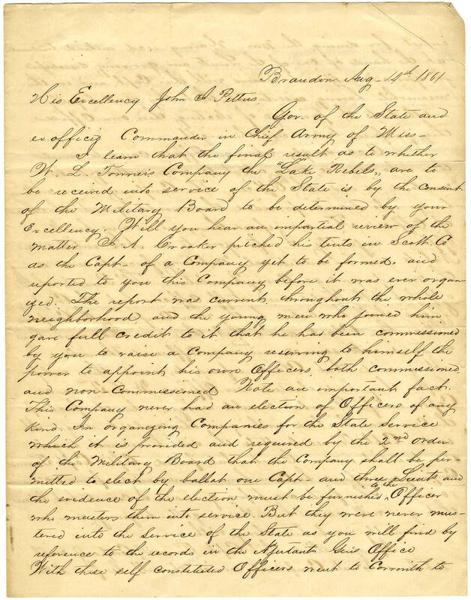 Brandon Aug 14th 1861
His Excellency John J Pettus
Gov. of the State and
ex officio Commander in Chief Army of Miss—
I learn that the final result as to whether
W. L. Company the "Lake Rebels," are to
be received into service of the State is by the Consent
of the Military Board to be determined by your
Excellency. Will you hear an impartial review of the
matter A. pitched his tents in Scott Co
as the Capt. of a Company yet to be formed, and
reported to you this Company before it was ever organ
yed. The report was current throughout the whole
neighborhood and the young men who joined him
gave full credit to it that he has been commissioned
by you to raise a Company reserving to himself the
power to appoint his own Officers, both commissioned
and non-Commissioned Note an important fact.
This Company never had an election of Officers of any
kind. In organyzing Companies for the State Service
which it is provided and required by the 2nd Order
of the Military Board that the Company shall be per
mitted to elect by ballot one Capt. and three Lieuts and
the evidence of the election must be furnished the Officer
who musters them into service. But they were never mus-
tered into the service of the State as you will find by
reference to the records in the Adjutant Gens Office
With these self constituted Officers went to Corinth to